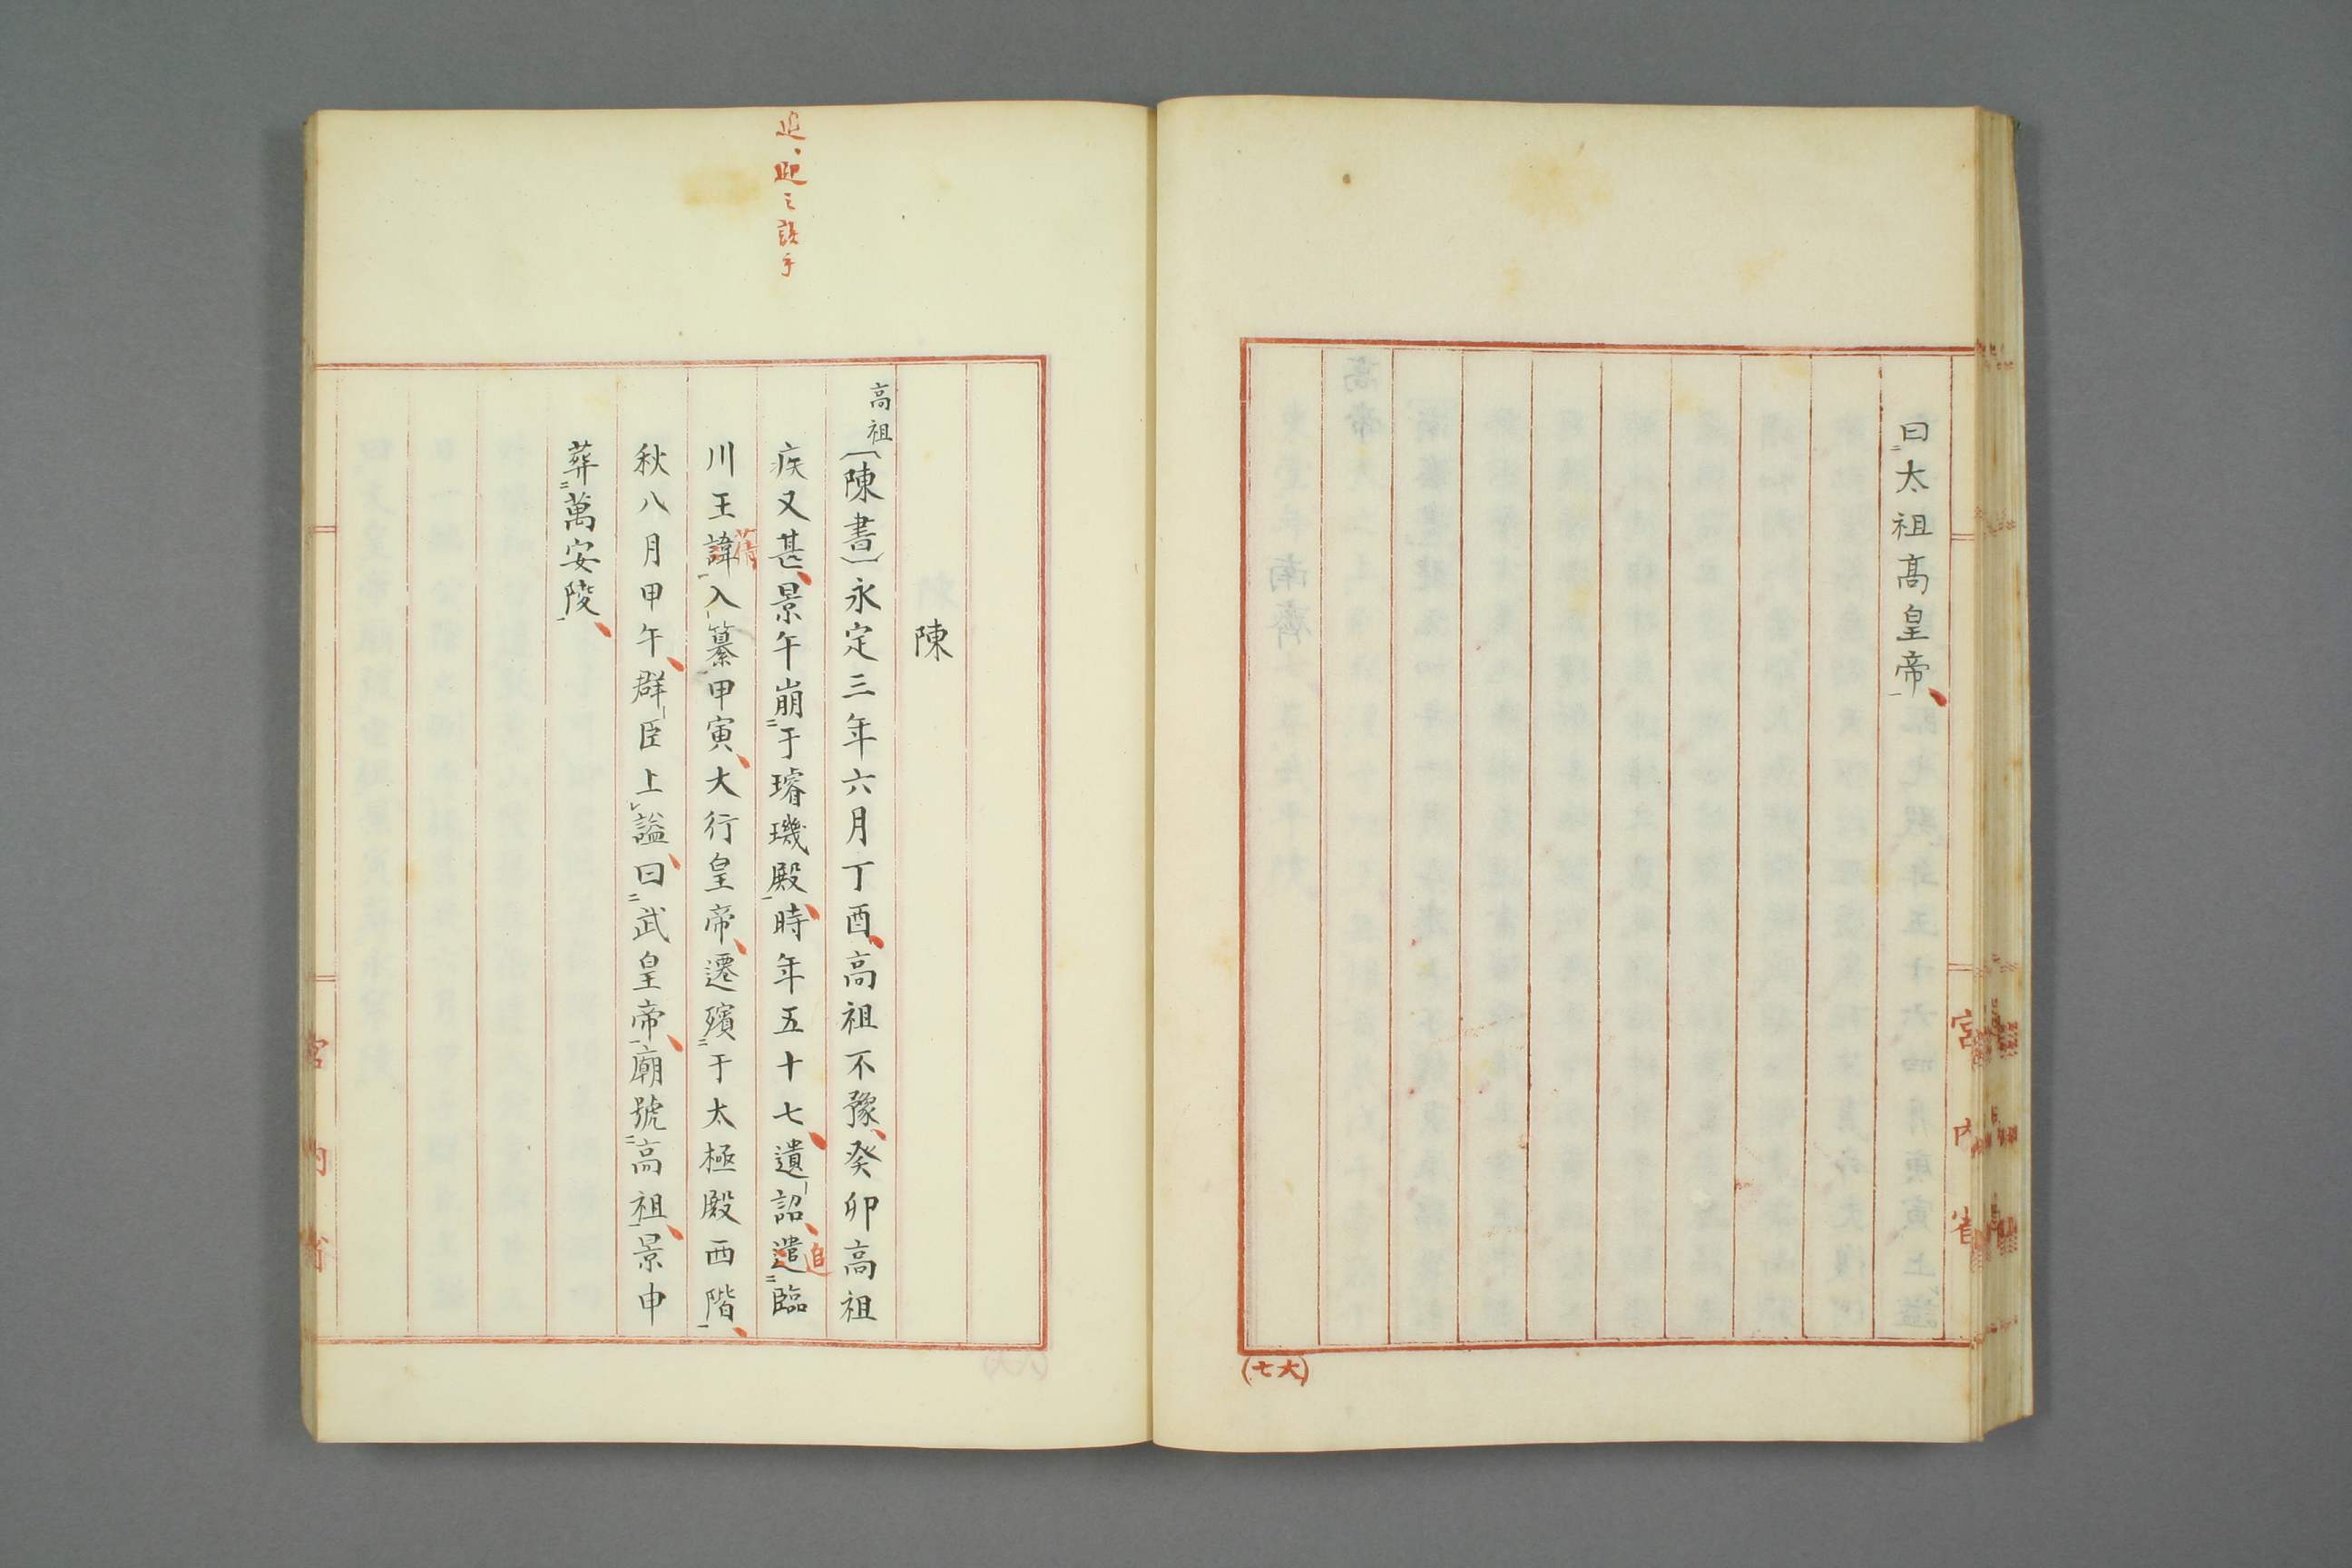 曰太祖高皇帝
宮内省
(七六)
陳
高祖
〔陳書〕永定三年六月丁酉高祖不豫癸卯高祖
疾又甚景午崩于璿璣殿時年五十七遺詔遣臨
追
川王諱入纂甲寅大行皇帝遷殯于太極殿西階
蒨
秋八月甲午群臣上謚曰武皇帝廟號高祖景申
葬萬安陵
追、迎之誤乎
宮内省